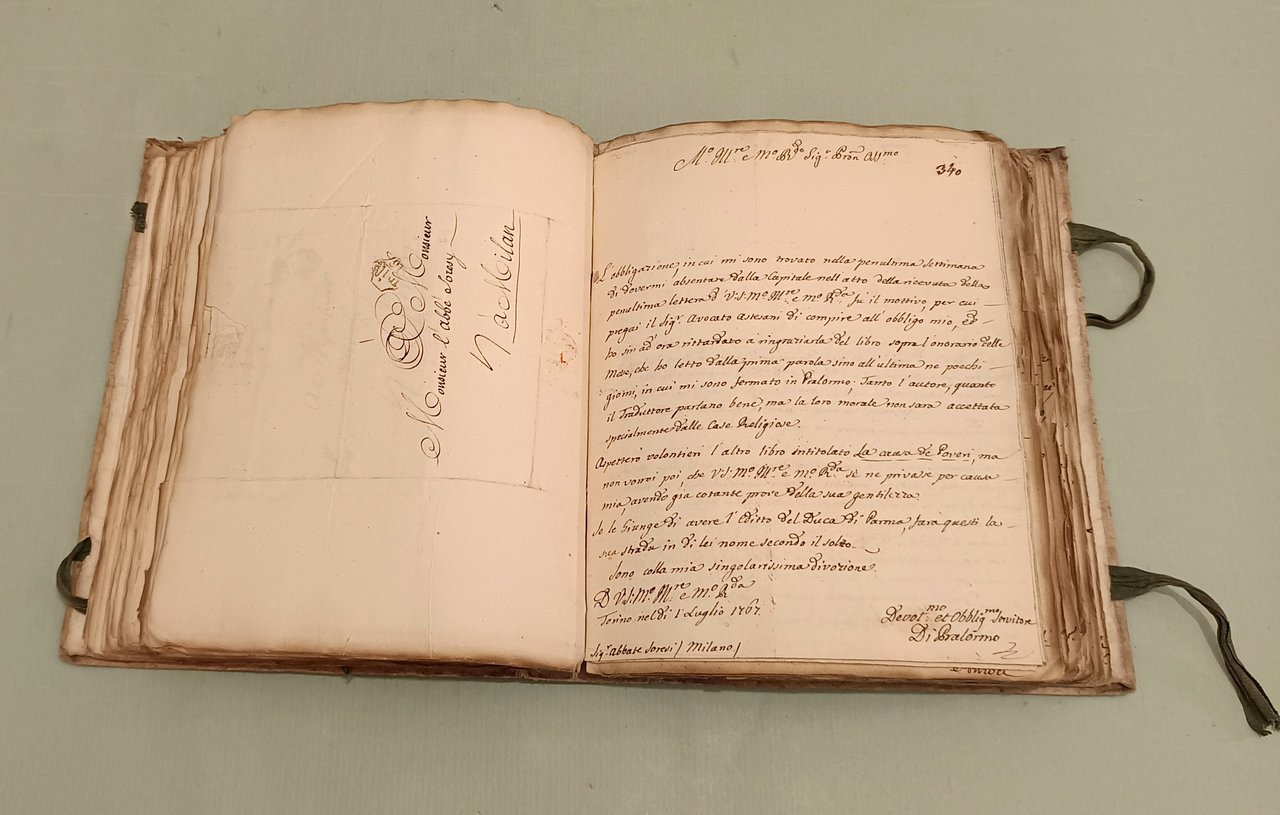 A Monsieur
Monsieur l'abbé Soresy
à Milan
M.º Ill.re e M.º R.do Sig.r Pron Oss.mo
340
L'obbligazione, in cui mi sono trovato nella penultima settimana
di dovermi absentare dalla Capitale nell'atto della ricevuta della
penultima lettera di V.S. M.º Ill.re e m.º R.da fu il mottivo, per cui
pregai il Sig.r Avocato Astesani di compire all'obbligo mio, ed
ho sin ad'ora rittardato a ringraziarla del libro sopra l'onorario delle
Messe, che ho letto dalla prima parola sino all'ultima ne poechi
giorni, in cui mi sono fermato in Pralormo; Tanto l'autore, quanto
il Traduttore parlano bene, ma la loro morale non sarà accettata
specialmente dalle Case Religiose.
Aspetterò volontieri l'altro libro intitolato La causa de Poveri, ma
non vorrei poi, che V.S. M.º Ill.re e m.º R.da se ne privasse per causa
mia, avendo già cotante prove della sua gentilezza.
Se le giunge di avere l'Editto del Duca di Parma, farà questi la
sua strada in di lei nome secondo il solito.
Sono colla mia singolarissima divozione.
D V.S. M.º Ill.re e m.º R.da
Torino nel dì 1 Luglio 1767
Devot.mo et Obblig.mo Servitore
Di Pralormo
Sig.r Abbate Soresi / Milano /